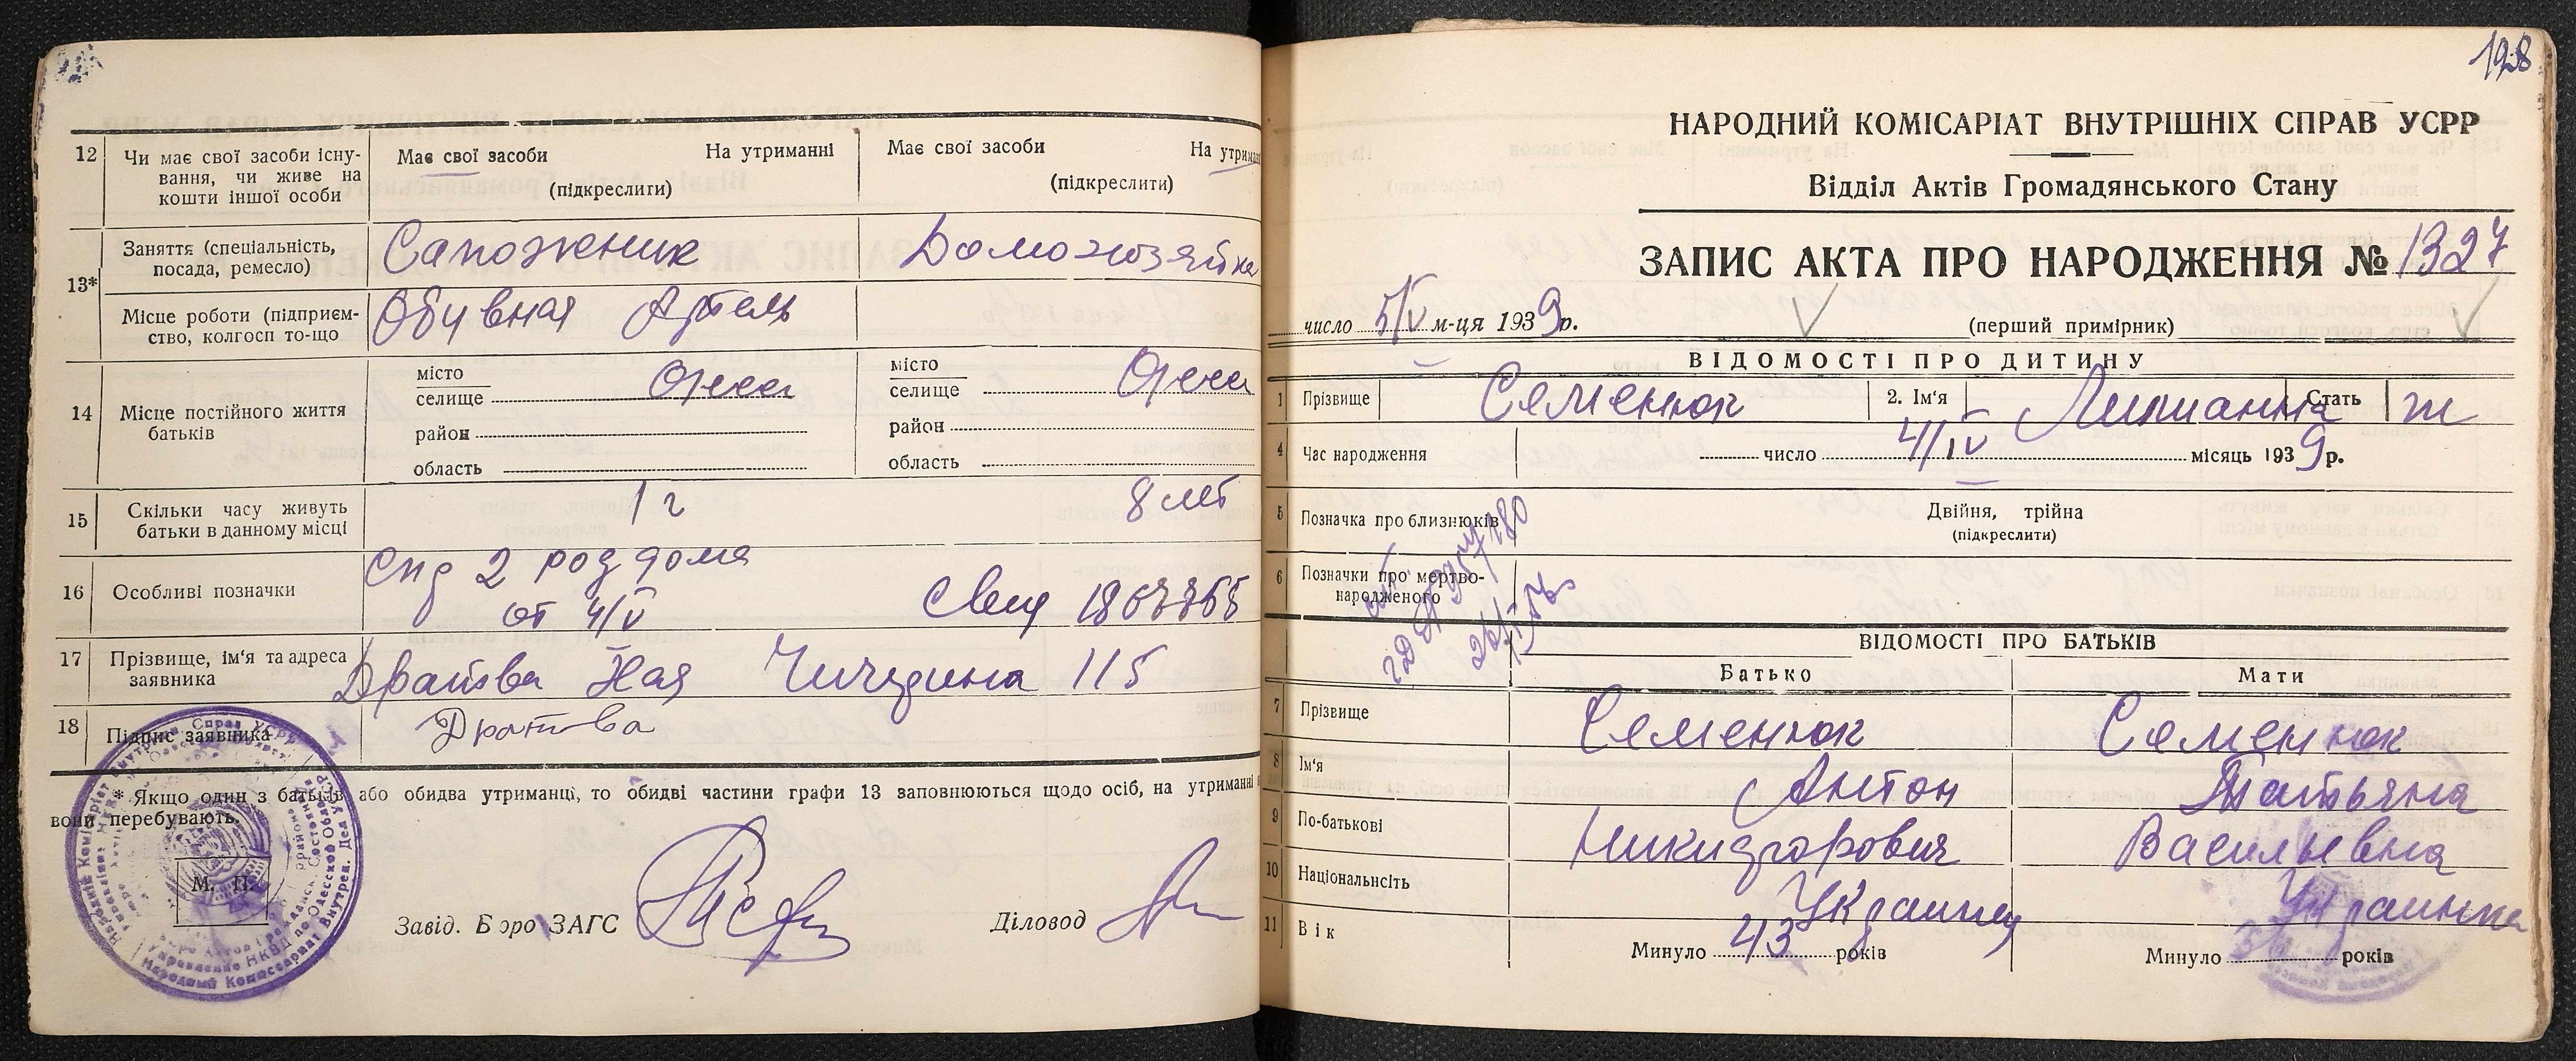 12
Чи має свої засоби існу-
вання, чи живе на
кошти іншої особи
Має свої засоби На утриманні
(підкреслиги)
Має свої засоби На утриман
(підкреслити)
13*
Заняття (спеціальність,
посада, ремесло)
Сапожник
Домохозяйка
Місце роботи (підприєм-
ство, колгосп то-що
Обувная Артель
14
Місце постійного життя
батьків
місто
селище Одесса
район
область
місто
селище Одесса
район
область
15
Скільки часу живуть
батьки в данному місці
1 г
8 лет
16
Особливі позначки
Спр 2 род дома
от 4/V
17
Прізвище, ім'я та адреса
заявника
Чичерина 115
18
Підпис заявника
* Якщо один з батьків або обидва утриманці, то обидві частини графи 13 заповнюються щодо осіб, на утриманні
вони перебувають.
М. П.
Завід. Бюро ЗАГС
Діловод
198
НАРОДНИЙ КОМІСАРІАТ ВНУТРІШНІХ СПРАВ УСРР
Відділ Актів Громадянського Стану
ЗАПИС АКТА ПРО НАРОДЖЕННЯ № 1327
число 5/V м-ця 1939р.
(перший примірник)
ВІДОМОСТІ ПРО ДИТИНУ
1 Прізвище Семенюк 2. Ім'я Лилианна Стать ж
4 Час народження число 4/IV місяць 1939р.
5 Позначка про близнюків Двійня, трійна
(підкреслити)
6 Позначки про мертво-
народженого
ВІДОМОСТІ ПРО БАТЬКІВ
Батько Мати
7 Прізвище Семенюк Семенюк
8 Ім'я Антон Татьяна
9 По-батькові Никифорович Васильевна
10 Національнсіть Украинец Украинка
11 Вік Минуло 43 років Минуло років